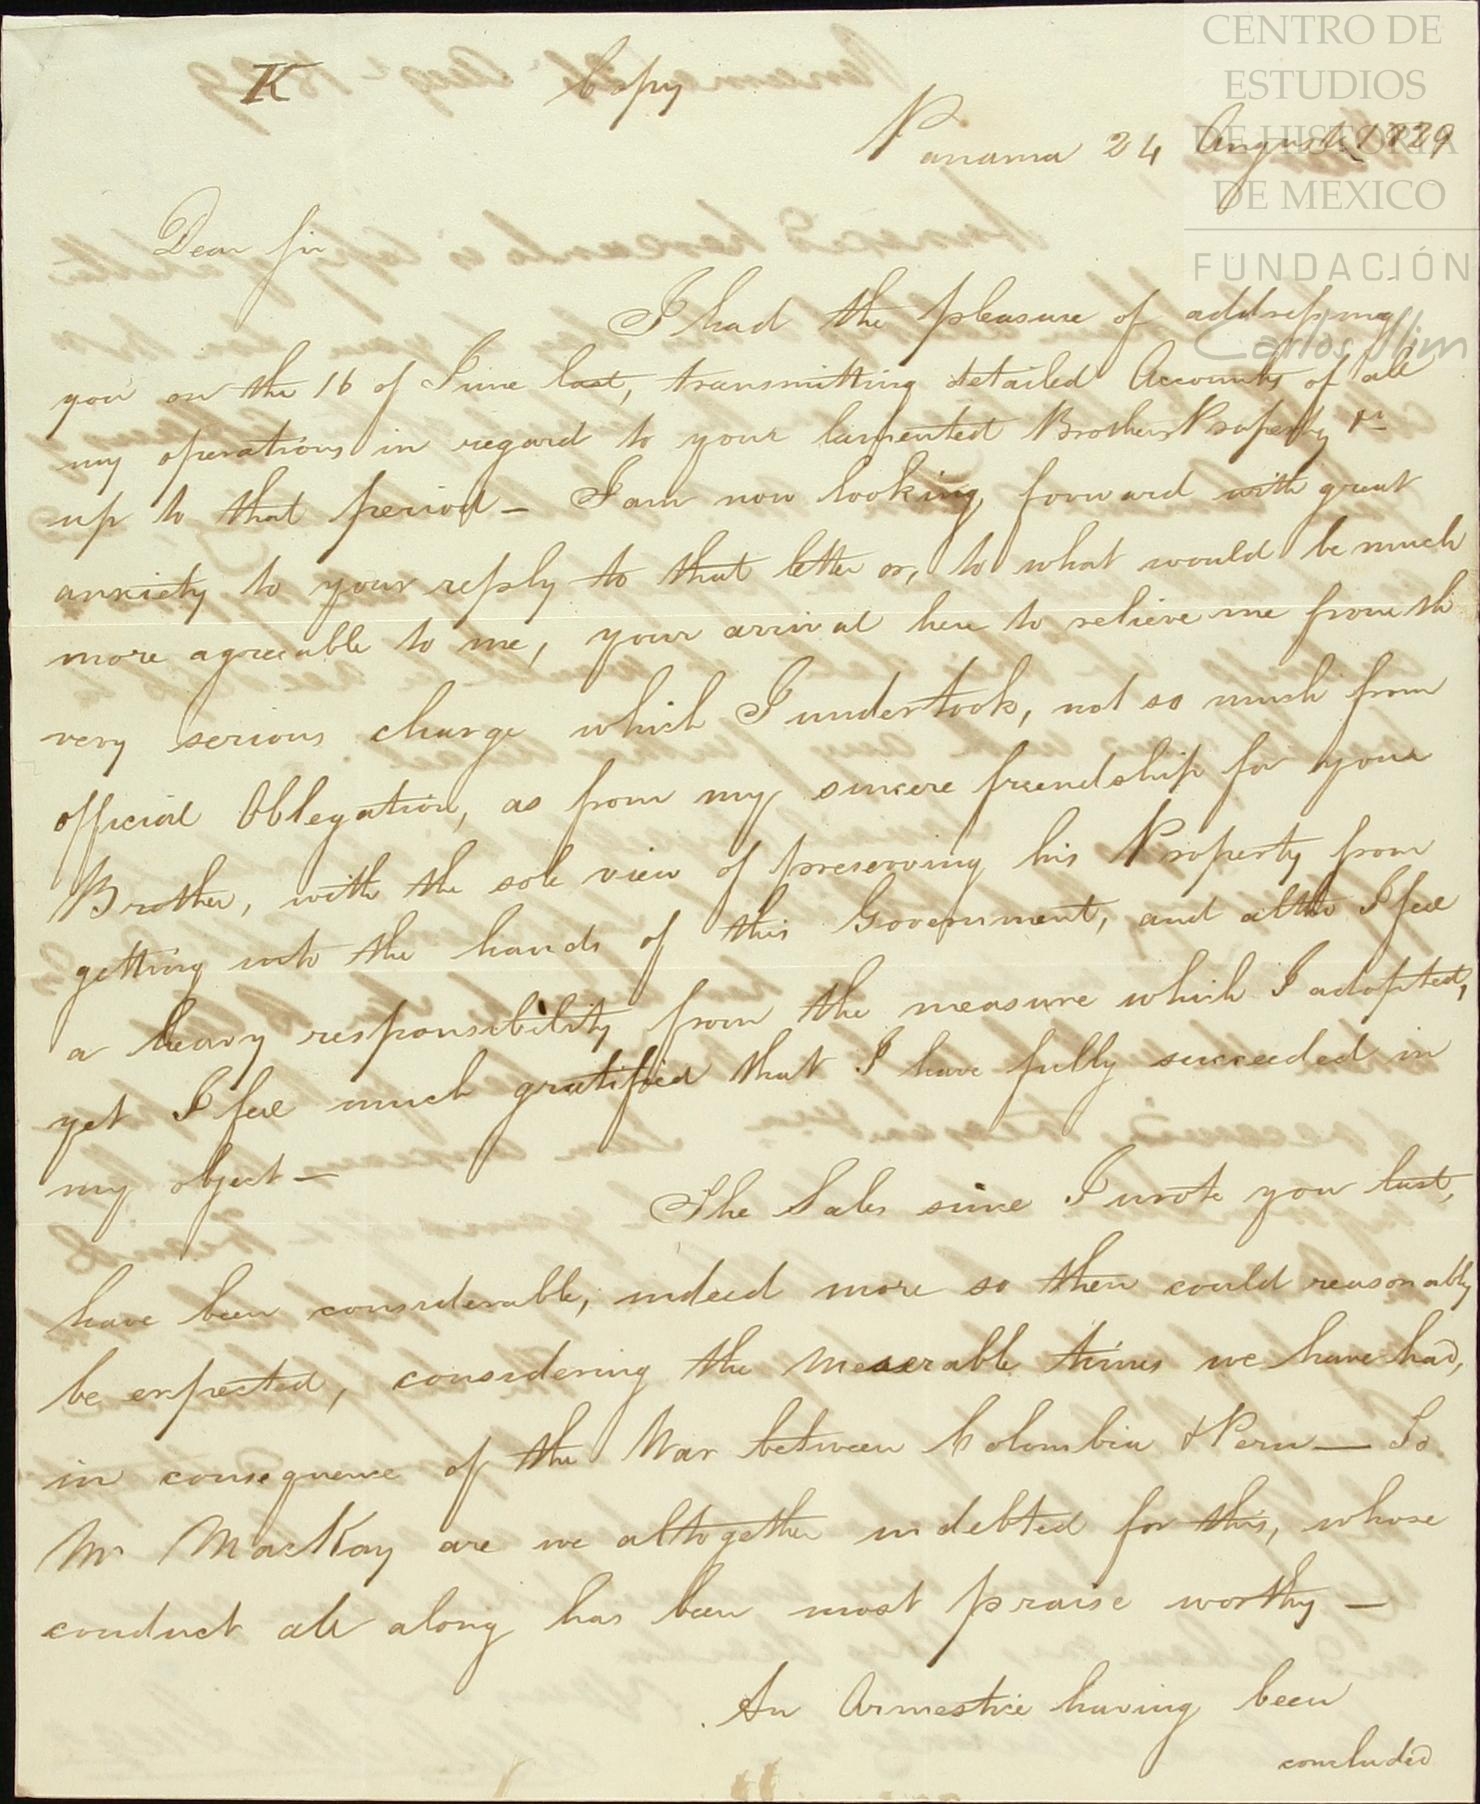 CENTRO DE
ESTUDIOS
DE HISTORIA
DE MEXICO
FUNDACIÓN
Carlos Slim
K
Copy
Panama 24 August 1829
Dear Sir
I had the pleasure of addressing
you on the 16 of June last, transmitting detailed Accounts of all
my operations in regard to your lamented Brothers Property &c
up to that period — I am now looking forward with great
anxiety to your reply to that letter or, to what would be much
more agreeable to me, your arrival here to relieve me from th
very serious charge which I undertook, not so much from
official Oblegation, as from my sincere friendship for your
Brother, with the sole view of preserving his Property from
getting into the hands of this Government, and altho I feel
a heavy responsibility from the measure which I adopted,
yet I feel much gratified that I have fully succeeded in
my object —
The Sales since I wrote you last,
have been considerable, indeed more so then could reasonably
be expected, considering the meserable times we have had,
in consequence of the War between Colombia & Peru — To
Mr MacKay are we altogether indebted for this, whose
conduct all along has been most praise worthy —
An Armestice having been
concluded